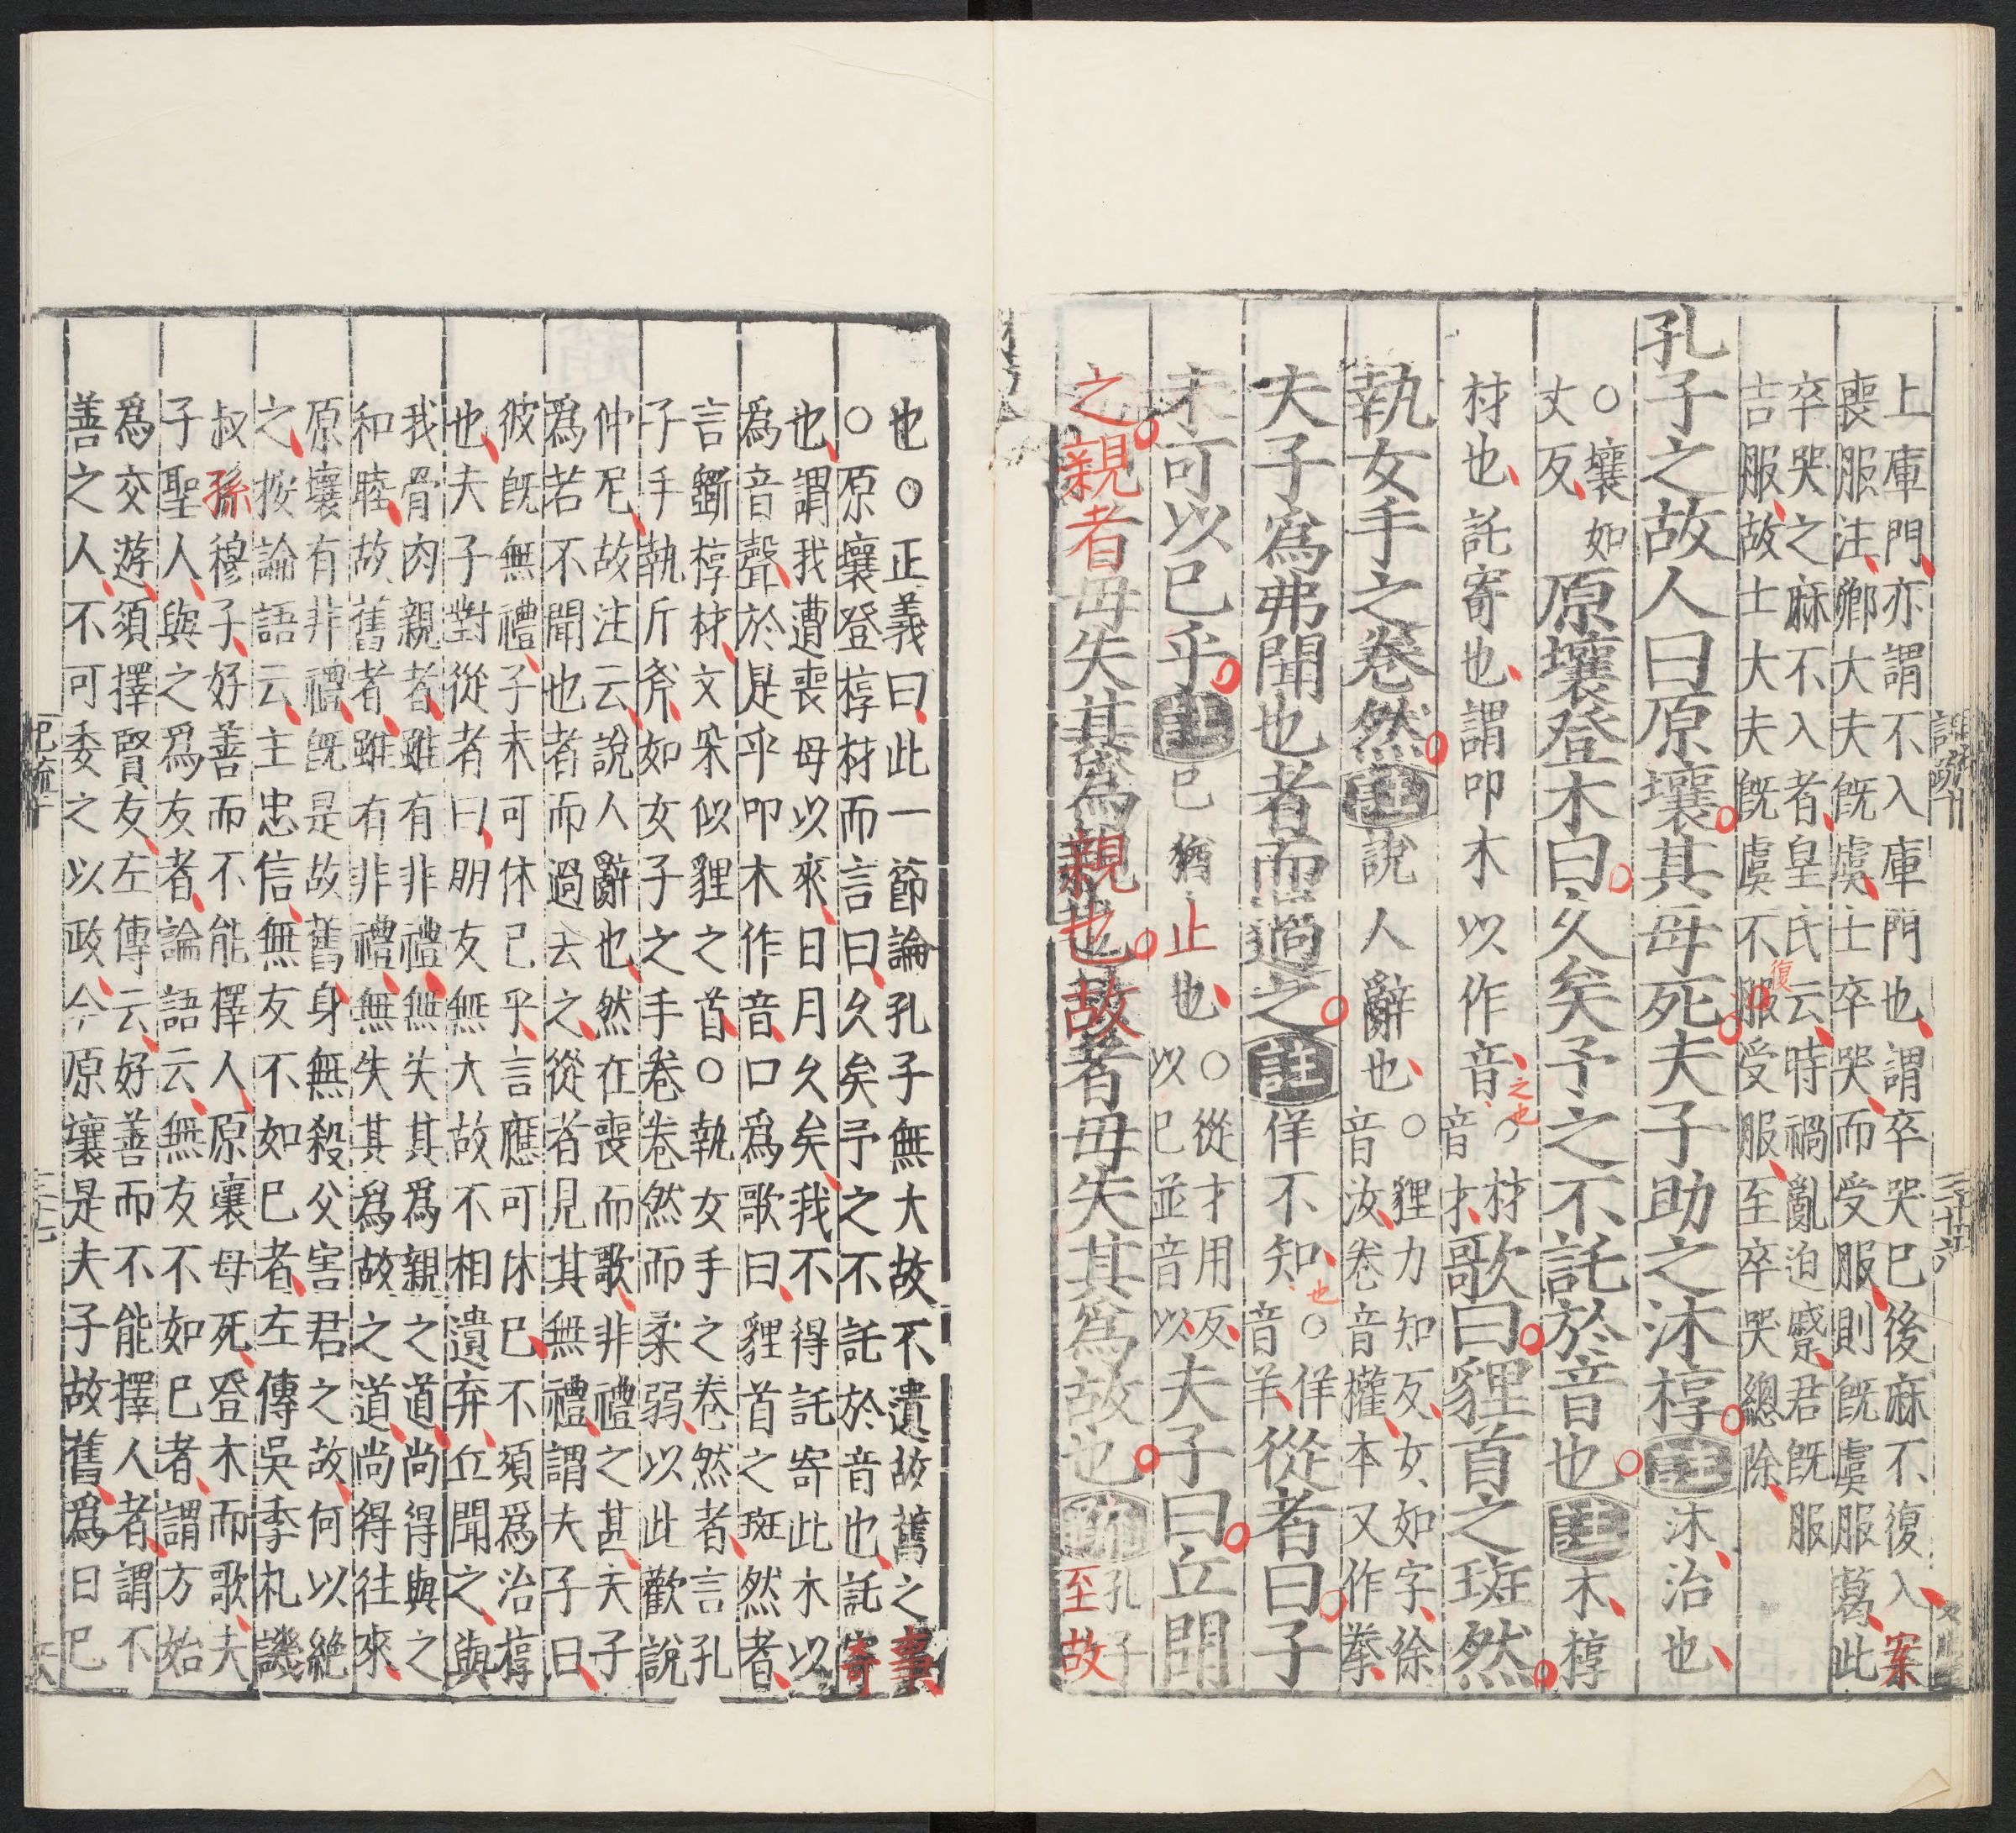 上庫門亦謂不入庫門也謂卒哭巳後麻不復入案
喪服注卿大夫既虞士卒哭而受服則既虞服葛此
卒哭之麻不入者皇氏云時禍亂迫蹙君既服
吉服故士大夫既虞不服受服至卒哭總除
復
孔子之故人曰原壤其母死夫子助之沐椁註沐治也
○壤如
丈反
原壤登木曰久矣予之不託於音也註木椁
材也託寄也謂叩木以作音
之也
○材
音才
歌曰貍首之斑然
執女手之卷然註說人辭也
○狸力知反女如字徐
音汝卷音權本又作拳
夫子爲弗聞也者而過之註佯不知
也
○佯
音羊
從者曰子
未可以已乎註已猶止也
○從才用反
以已並音以
夫子曰丘聞
之親者毋失其爲親也故者毋失其爲故也疏
孔子
至故
也○正義曰此一節論孔子無大故不遺故舊之事
○原壤登椁材而言曰久矣予之不託於音也託寄
也謂我遭喪母以來日月久矣我不得託寄此木以
爲音聲於是乎叩木作音口爲歌曰貍首之斑然者
言斵椁材文采似貍之首○執女手之卷然者言孔
子手執斤斧如女子之手卷卷然而柔弱以此歡說
仲尼故注云說人辭也然在喪而歌非禮之甚夫子
爲若不聞也者而過去之從者見其無禮謂夫子曰
彼既無禮子未可休已乎言應可休已不須爲治椁
也夫子對從者曰朋友無大故不相遺弃丘聞之與
我骨肉親者雖有非禮無失其爲親之道尚得與之
和睦故舊者雖有非禮無失其爲故之道尚得往來
原壤有非禮既是故舊身無殺父害君之故何以絶
之按論語云主忠信無友不如已者左傳吳季札譏
叔孫穆子好善而不能擇人原壤母死登木而歌夫
子聖人與之爲友者論語云無友不如已者謂方始
爲交游須擇賢友左傳云好善而不能擇人者謂不
善之人不可委之以政今原壤是夫子故舊爲日已